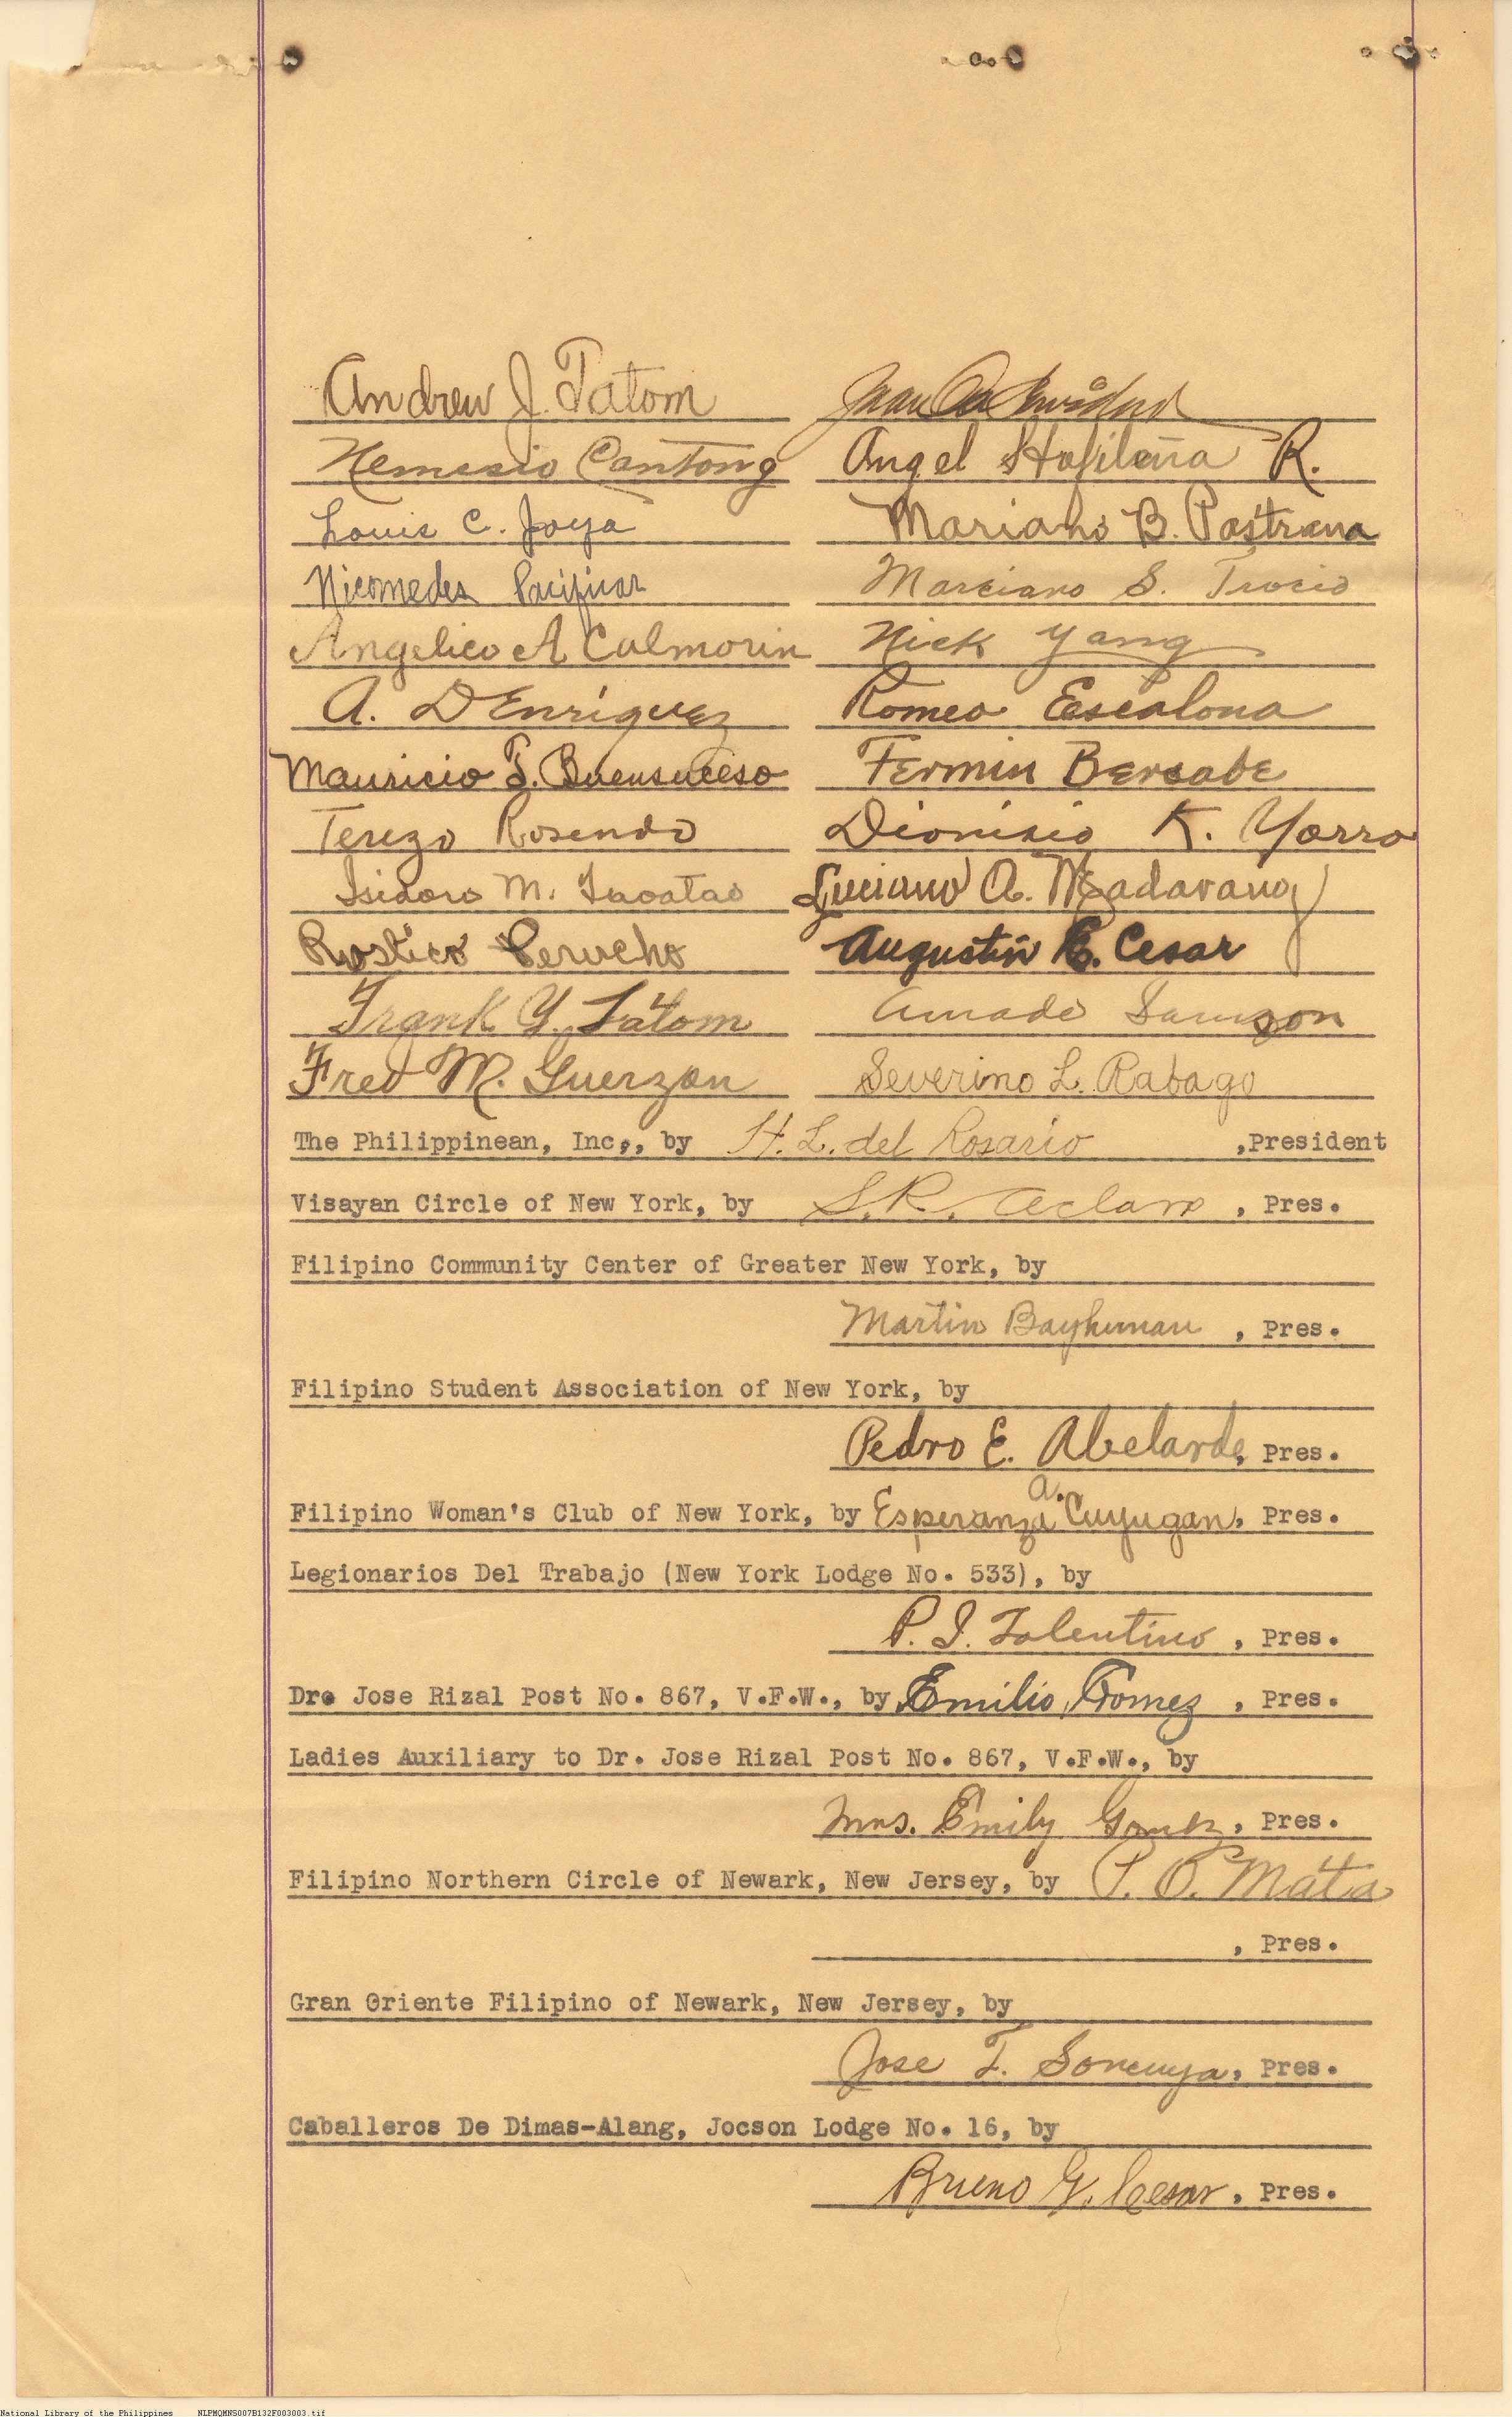 Andrew J. Tatom Juan
Nemesio Cantong Angel Hofileña R.
Louis C. Joya Mariano B. Pastrana
Nicomedes Pacificar Marciano S. Trocio
Angelico A Calmorin Nick Yang
A. D Enriquez Romeo Escalona
Mauricio T. Buensuceso Fermin Bersabe
Terezo Rosendo Dionisio K. Yorro
Isidoro M. Luciano A. Madarang
Rostico Perucho Augustin E. Cesar
Frank Y. Tatom Amado Samson
Fred M. Guerzon Severino L. Rabago
The Philippinean, Inc., by H. L. del Rosario ,President
Visayan Circle of New York, by S.R. Aclaro , Pres.
Filipino Community Center of Greater New York, by
Martin , Pres.
Filipino Student Association of New York, by
Pedro E. Abelarde, Pres.
Filipino Woman's Club of New York, by Esperanza A. Cuyugan, Pres.
Legionarios Del Trabajo (New York Lodge No. 533), by
P. I. Tolentino , Pres.
Dr. Jose Rizal Post No. 867, V.F.W., by Emilio Gomez , Pres.
Ladies Auxiliary to Dr. Jose Rizal Post No. 867, V.F.W., by
Mrs. Emily Gomez, Pres.
Filipino Northern Circle of Newark, New Jersey, by P. O. Mata
, Pres.
Gran Oriente Filipino of Newark, New Jersey, by
Jose T. Soncuya, Pres.
Caballeros De Dimas-Alang, Jocson Lodge No. 16, by
Bruno G. Cesar, Pres.
National Library of the Philippines NLPMQMNS007B132F003003.tif